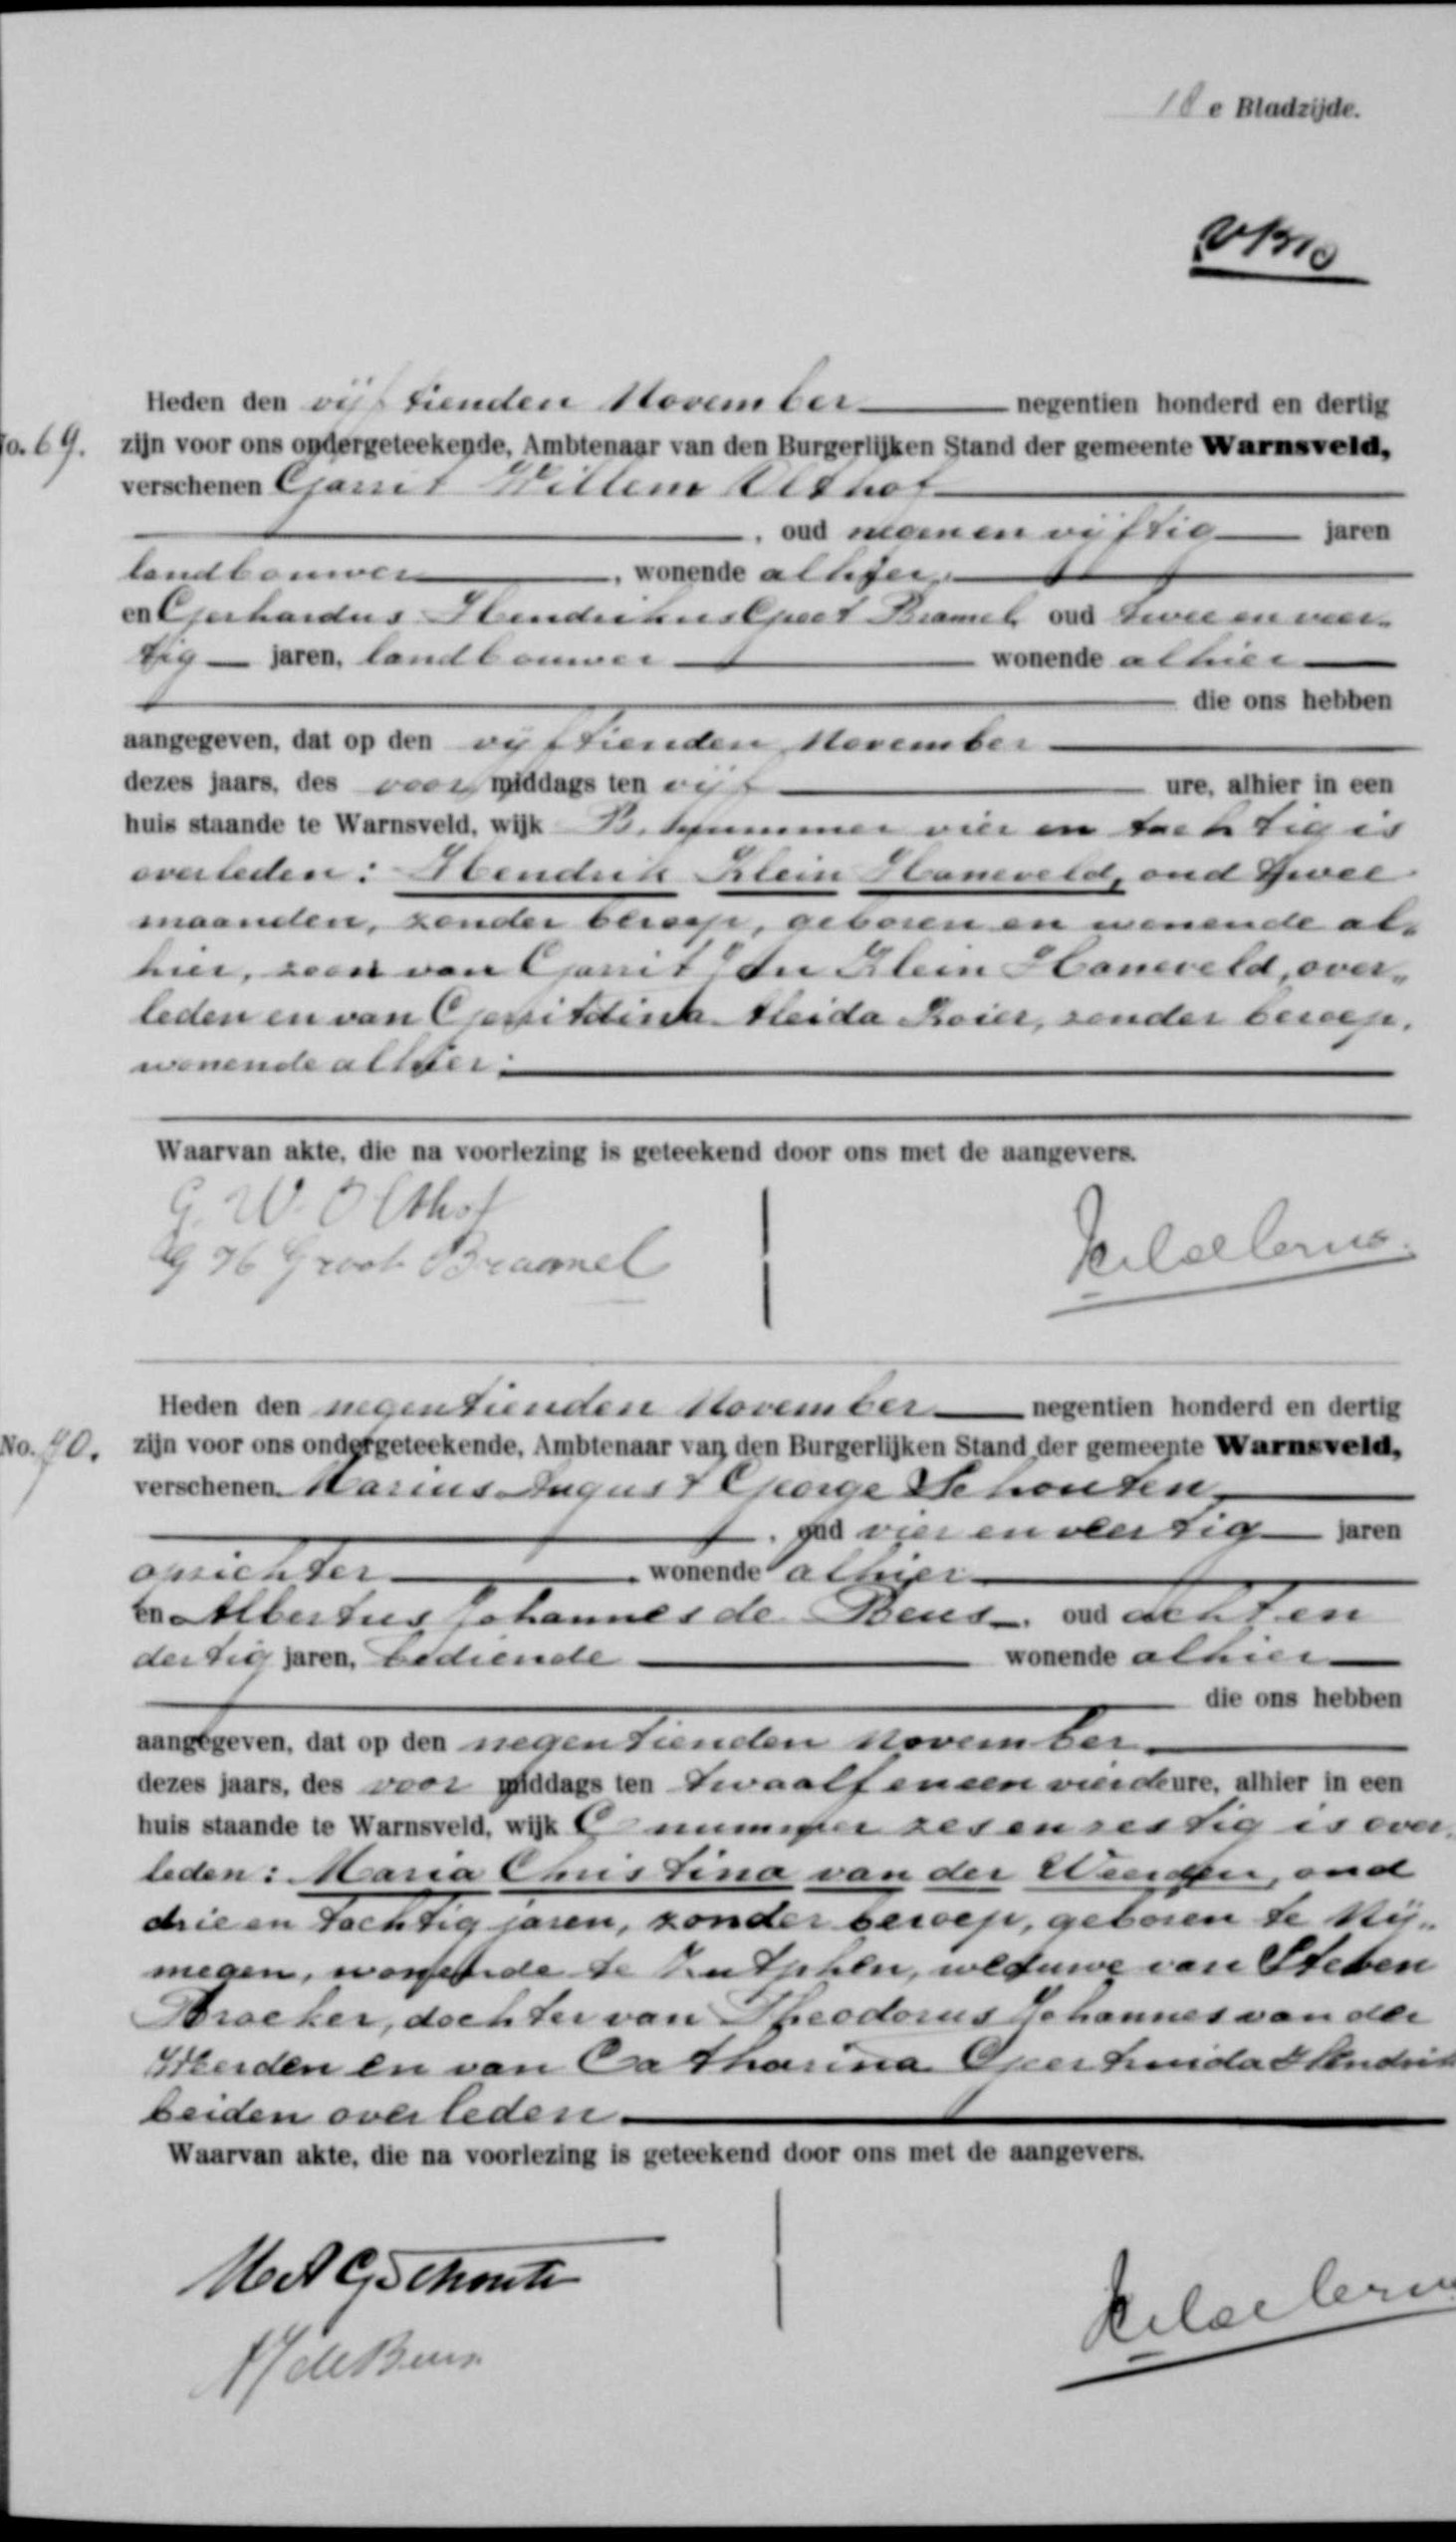 18e Bladzijde.
No. 69.
Heden den vijftienden November negentien honderd en dertig
zijn voor ons ondergeteekende, Ambtenaar van den Burgerlijken Stand der gemeente Warnsveld,
verschenen Gerrit Willem Olthof
, oud negen en vijftig jaren
landbouwer, wonende alhier,
en Gerhardus Hendrikus Groot Bramel, oud twee en veer-
tig jaren, landbouwer wonende alhier
die ons hebben
aangegeven, dat op den vijftienden November
dezes jaars, des voormiddags ten vijf ure, alhier in een
huis staande te Warnsveld, wijk B. nummer vier en tachtig is
overleden: Hendrik Klein Haneveld, oud twee
maanden, zonder beroep, geboren en wonende al-
hier, zoon van Gerrit Jan Klein Haneveld, over-
leden en van Gerritdina Aleida Roier, zonder beroep,
wonende alhier.
Waarvan akte, die na voorlezing is geteekend door ons met de aangevers.
G. W. Olthof
G H Groot Braamel
No. 70.
Heden den negentienden November negentien honderd en dertig
zijn voor ons ondergeteekende, Ambtenaar van den Burgerlijken Stand der gemeente Warnsveld,
verschenen Marius August George Schouten
, oud vier en veertig jaren
opzichter, wonende alhier
en Albertus Johannes de Beus, oud acht en
dertig jaren, bediende wonende alhier
die ons hebben
aangegeven, dat op den negentienden November
dezes jaars, des voor middags ten twaalf en een vierde ure, alhier in een
huis staande te Warnsveld, wijk C nummer zes en zestig is over-
leden: Maria Christina van der Weerden, oud
drie en tachtig jaren, zonder beroep, geboren te Nij-
megen, wonende te Zutphen, weduwe van Steven
Broeker, dochter van Theodorus Johannes van der
Weerden en van Catharina Geertruida Hendrik
beiden overleden.
Waarvan akte, die na voorlezing is geteekend door ons met de aangevers.
M A G Schouten
A J de Beus